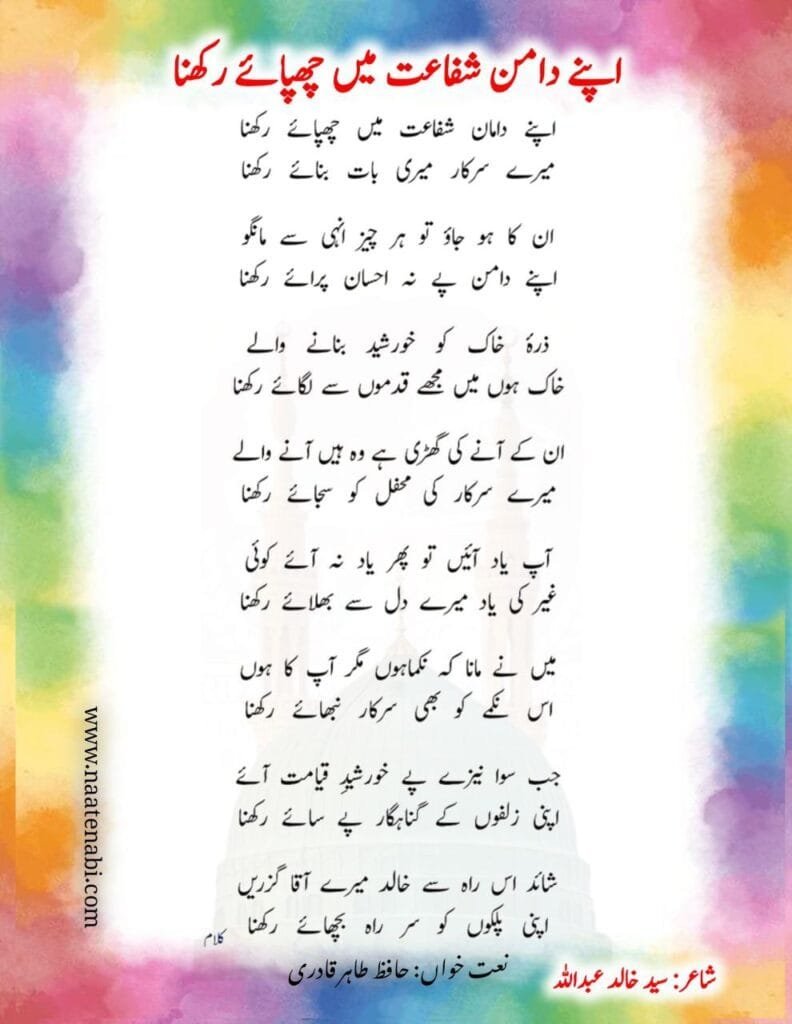 اپنے دامن شفاعت میں چھپائے رکھنا
اپنے دامان شفاعت میں چھپائے رکھنا
میرے سرکار میری بات بنائے رکھنا
ان کا ہو جاؤ تو ہر چیز انہی سے مانگو
اپنے دامن پے نہ احسان پرائے رکھنا
ذرۂ خاک کو خورشید بنانے والے
خاک ہوں میں مجھے قدموں سے لگائے رکھنا
ان کے آنے کی گھڑی ہے وہ ہیں آنے والے
میرے سرکار کی محفل کو سجائے رکھنا
آپ یاد آئیں تو پھر یاد نہ آئے کوئی
غیر کی یاد میرے دل سے بھلائے رکھنا
میں نے مانا کہ نکماہوں مگر آپ کا ہوں
اس نکمے کو بھی سرکار نبھائے رکھنا
جب سوا نیزے پے خورشیدِ قیامت آئے
اپنی زلفوں کے گناہگار پے سائے رکھنا
شائد اس راہ سے خالد میرے آقا گزریں
اپنی پلکوں کو سر راہ بچھائے رکھنا
کلام
شاعر: سید خالد عبداللہ
نعت خواں: حافظ طاہر قادری
www.naatenabi.com